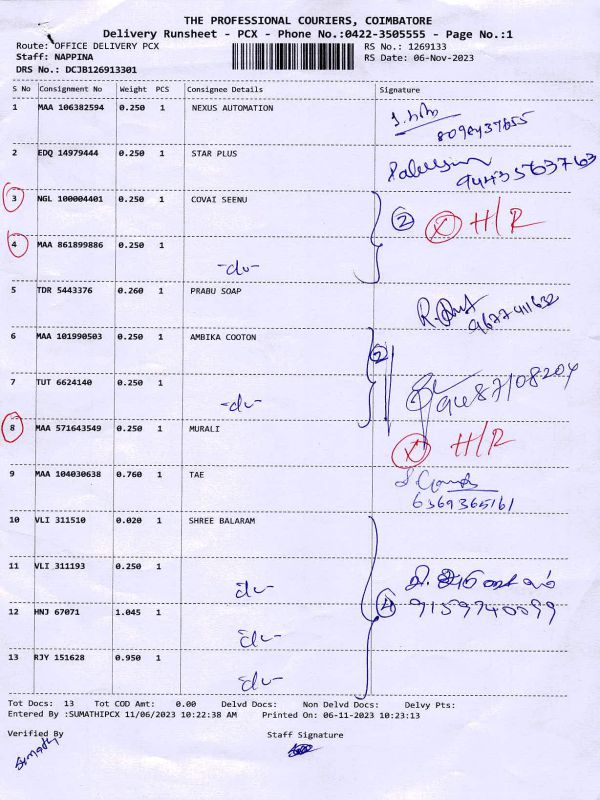 THE PROFESSIONAL COURIERS, COIMBATORE
Delivery Runsheet - PCX - Phone No.:0422-3505555 - Page No.:1
Route: OFFICE DELIVERY PCX RS No.: 1269133
Staff: NAPPINA RS Date: 06-Nov-2023
DRS No.: DCJB126913301
S No Consignment No Weight PCS Consignee Details Signature
1 MAA 106382594 0.250 1 NEXUS AUTOMATION
2 EDQ 14979444 0.250 1 STAR PLUS
9443563763
3 NGL 100004401 0.250 1 COVAI SEENU 2 X H/R
4 MAA 861899886 0.250 1
-do-
5 TDR 5443376 0.260 1 PRABU SOAP
9677411632
6 MAA 101990503 0.250 1 AMBIKA COOTON 2
7 TUT 6624140 0.250 1
-do- 9487108204
8 MAA 571643549 0.250 1 MURALI X H/R
9 MAA 104030638 0.760 1 TAE
6369365161
10 VLI 311510 0.020 1 SHREE BALARAM
11 VLI 311193 0.250 1
do-
12 HNJ 67071 1.045 1 4 9159740099
do-
13 RJY 151628 0.950 1
do-
Tot Docs: 13 Tot COD Amt: 0.00 Delvd Docs: Non Delvd Docs: Delvy Pts:
Entered By :SUMATHIPCX 11/06/2023 10:22:38 AM Printed On: 06-11-2023 10:23:13
Verified By Staff Signature
Sumathy